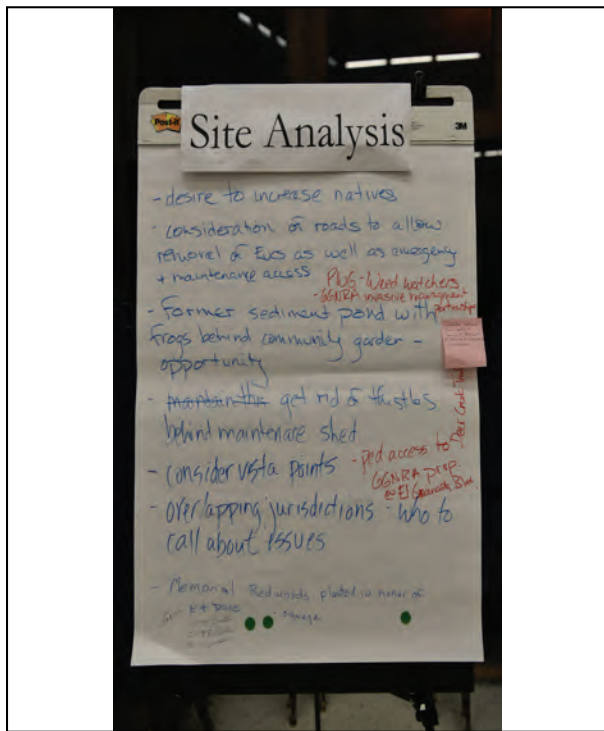 Post-it
3M
Site Analysis
- desire to increase natives
- consideration of roads to allow
removal of Eucs as well as emegency
+ maintenance access
PUG - Weed watchers
- GGNRA invasive management
partnership
- Former sediment pond with
frogs behind community garden -
opportunity
- maintain the get rid of thistles
behind maintenace shed
Deer Creek
- consider vista points
- ped access to
GGNRA prop.
@ El Granada Blvd
- overlapping jurisdictions - who to
call about issues
- Memorial Redwoods planted in honor of